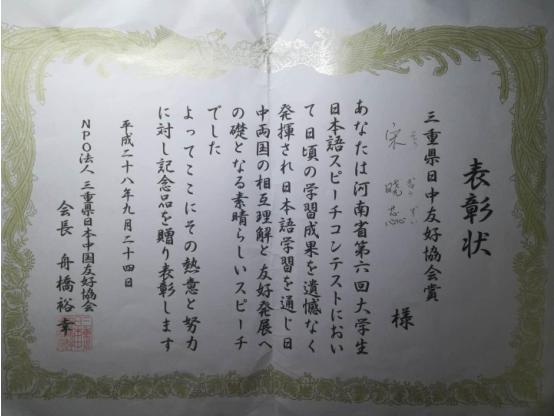 表彰状
三重県日中友好協会賞
宋 暁蕊 様
あなたは河南省第六回大学生
日本語スピーチコンテストにおい
て日頃の学習成果を遺憾なく
発揮され日本語学習を通じ日
中両国の相互理解と友好発展へ
の礎となる素晴らしいスピーチ
でした
よってここにその熱意と努力
に対し記念品を贈り表彰します
平成二十八年九月二十四日
NPO法人 三重県日本中国友好協会
会長 舟橋裕幸